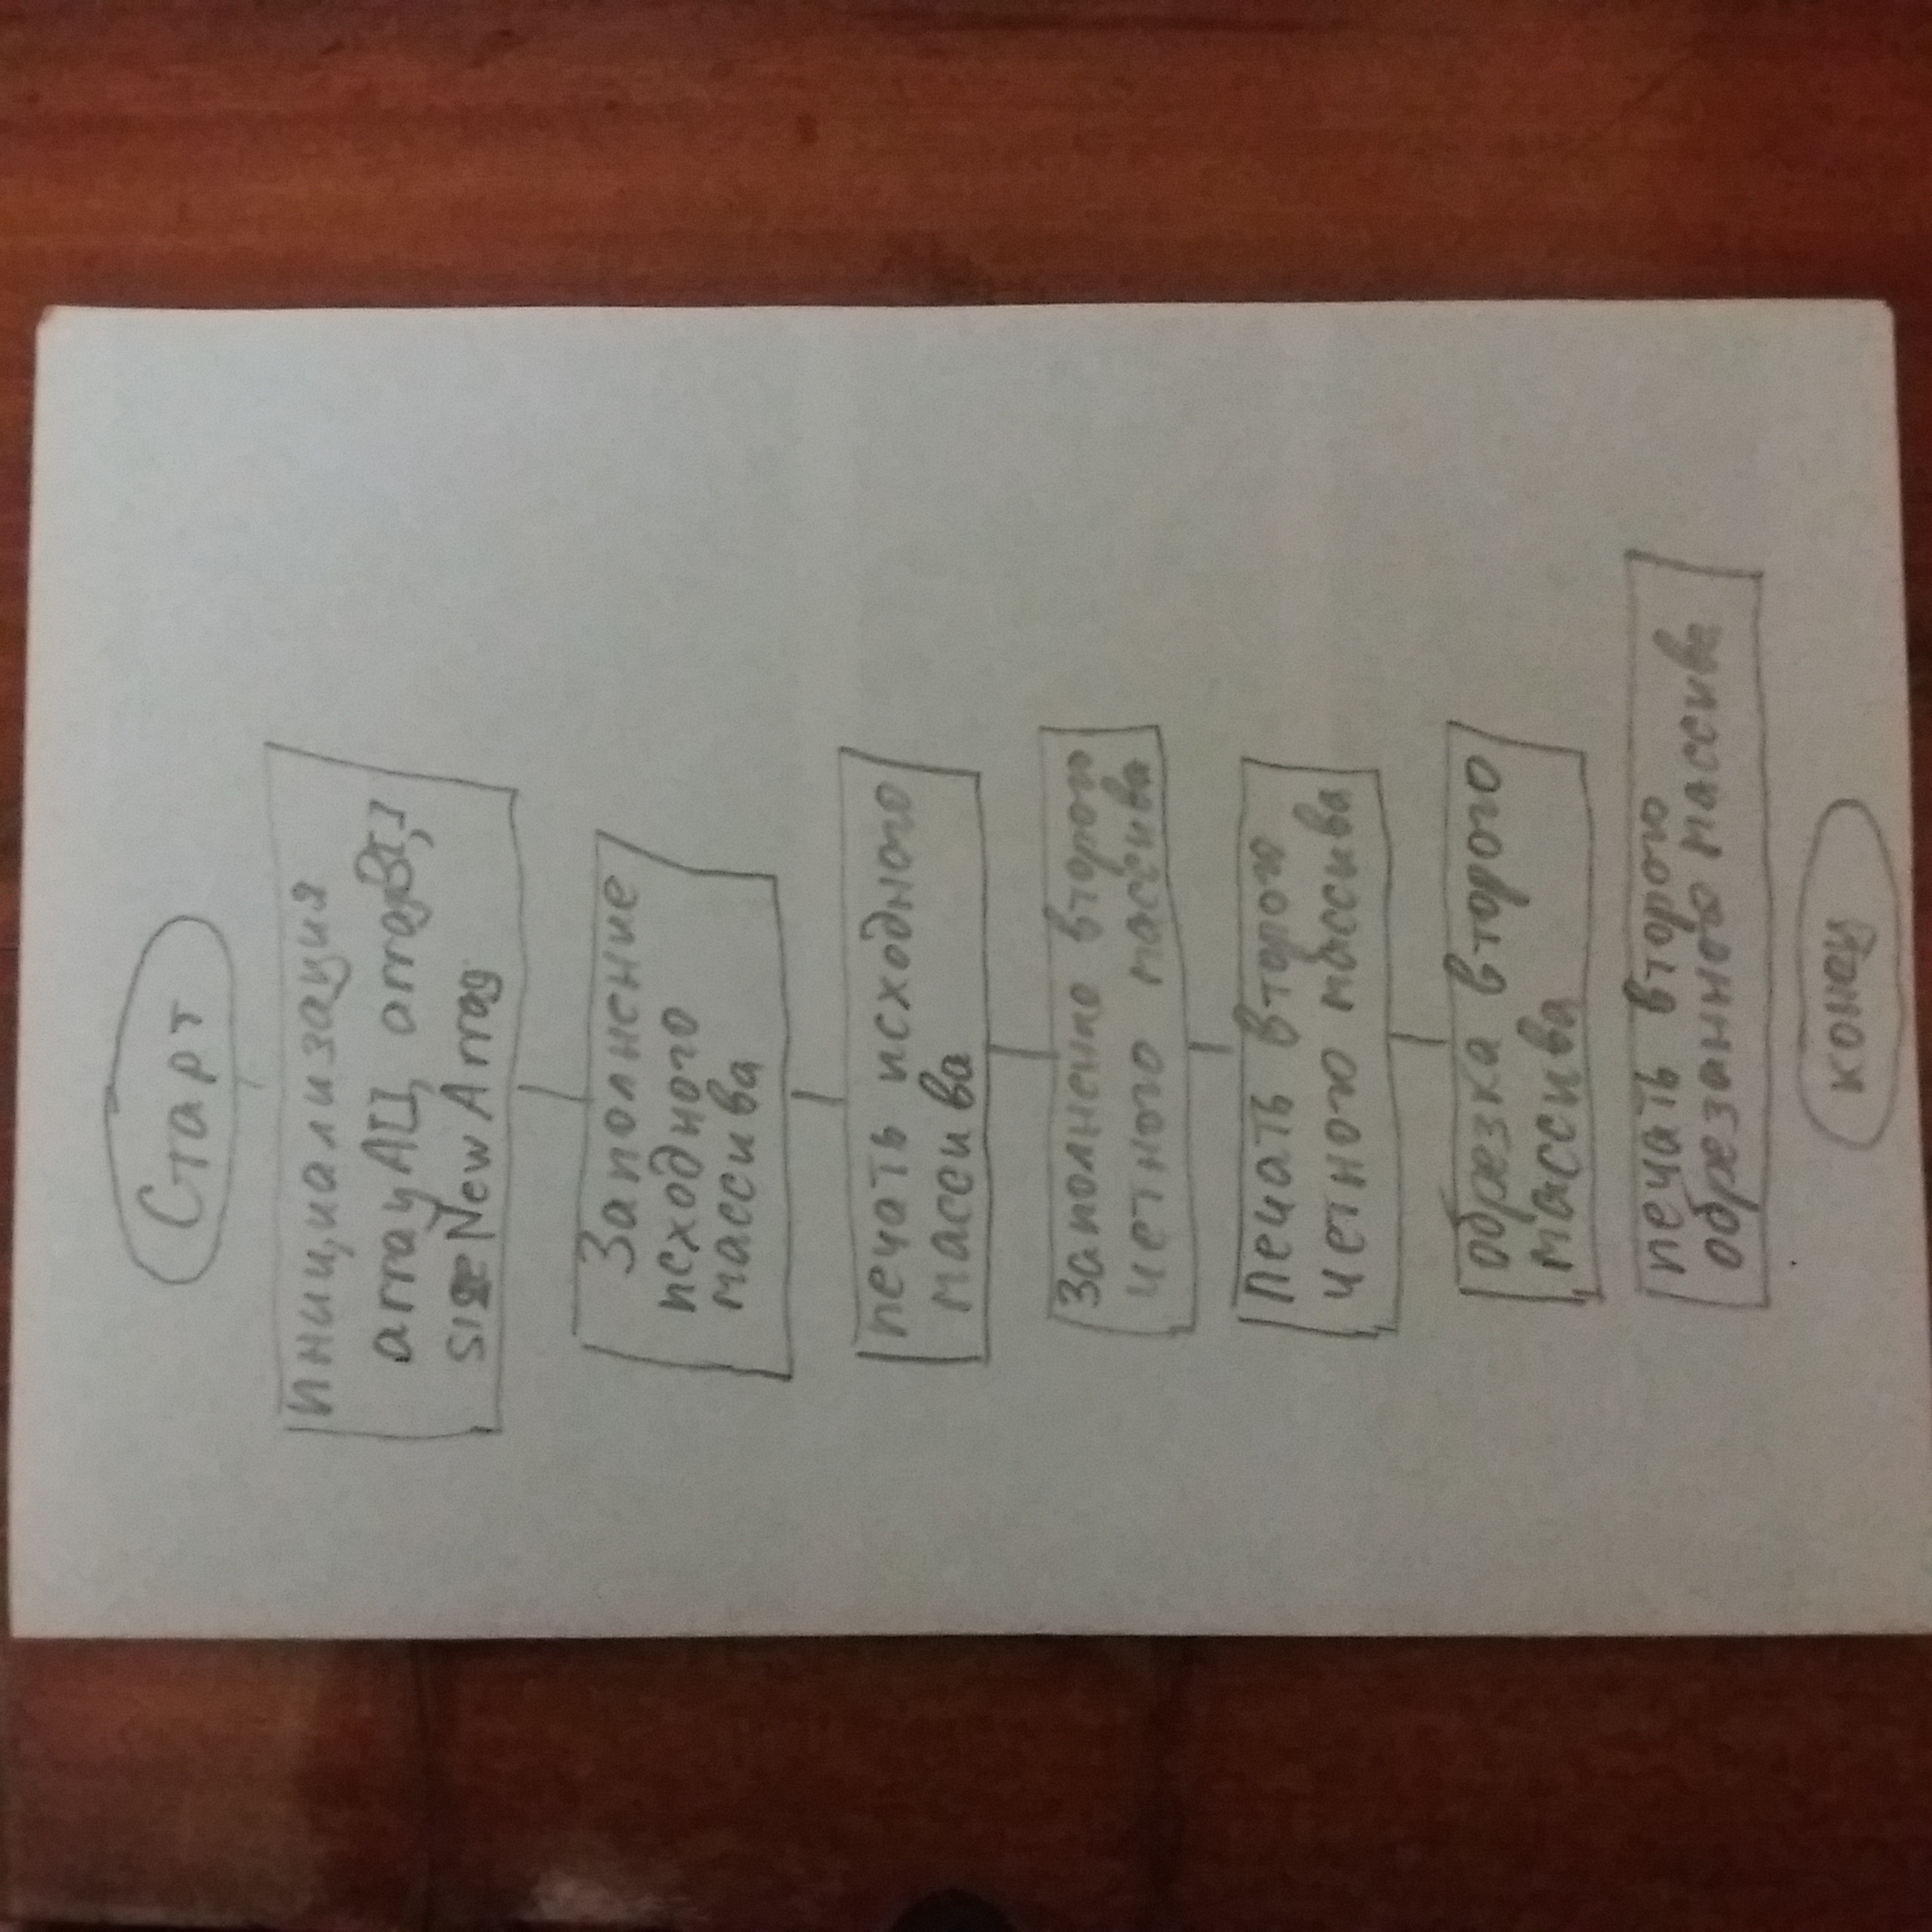 Старт
инициализация
arrayA[], arrayB[],
sizeNewArray
Заполнение
исходного
массива
печать исходного
массива
Заполнение второго
четного массива
Печать второго
четного массива
обрезка второго
массива
печать второго
обрезанного массива
конец